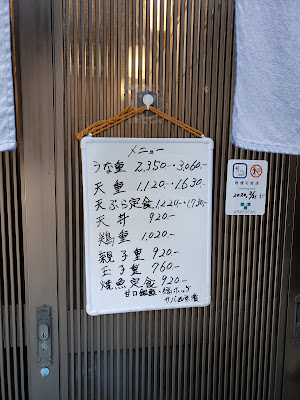 メニュー
うな重 2,350-・3,060-
天重 1,120-・1,630-
天ぷら定食 1,220-・1,730-
天丼 920-
鶏重 1,020-
親子重 920-
玉子重 760-
焼魚定食 920-
甘口